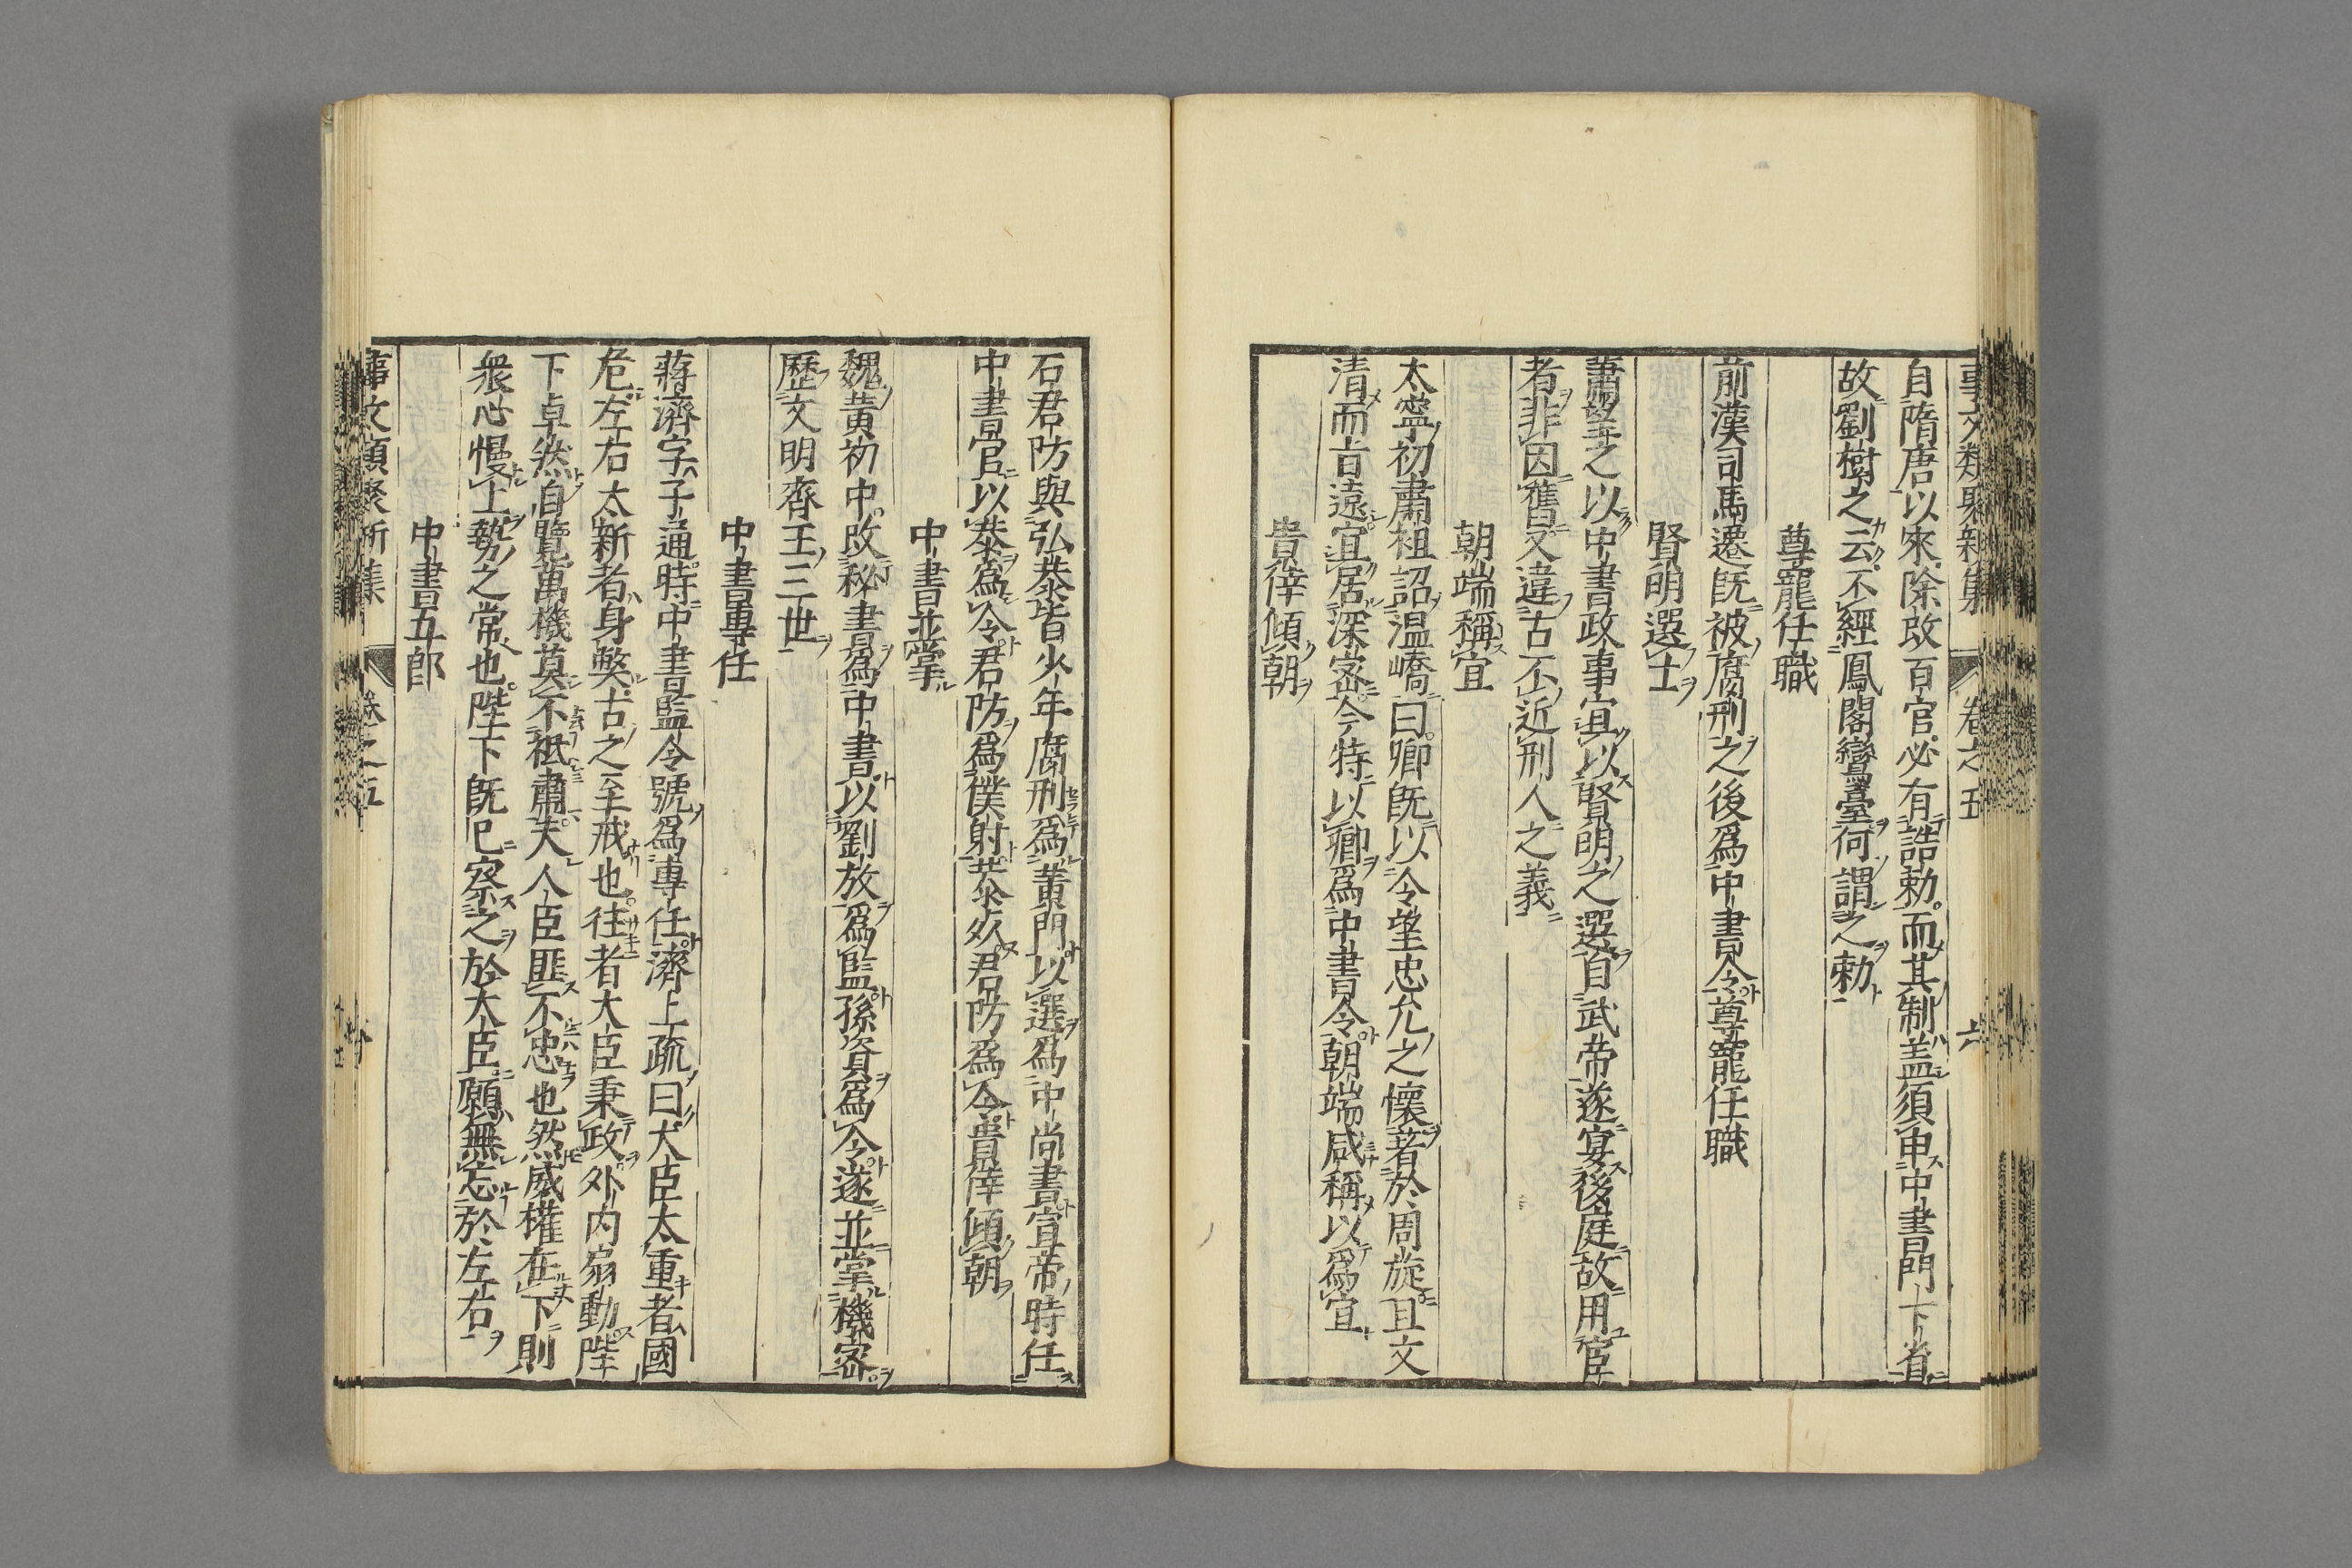 事文類聚新集 卷之五 六
自隋唐以來除改百官必有誥勅而其制盖須申中書門下省
故劉樹之云不經鳳閣鸞臺何謂之勅
尊寵任職
前漢司馬遷旣被腐刑之後爲中書令尊寵任職
賢明選士
蕭望之以中書政事宜以賢明之選自武帝遂宴後庭故用宦
者非因舊又違古不近刑人之義
朝端稱宜
太寧初肅祖詔温嶠曰卿旣以令望忠允之懷著於周旋且文
清而旨遠宜居深宻今特以卿爲中書令朝端咸稱以爲宜
貴倖傾朝
石君防與弘恭皆少年腐刑爲黄門以選爲中尚書宣帝時任
中書官以恭爲令君防爲僕射恭死君防爲令貴倖傾朝
中書並掌
魏黄初中改秘書爲中書以劉放爲監孫資爲令遂並掌機宻
歷文明齊王三世
中書專任
蔣濟字子通時中書監令號爲專任濟上疏曰大臣太重者國
危左右太新者身獘古之至戒也往者大臣秉政外内扇動陛
下卓然自覽萬機莫不祗肅夫人臣匪不忠也然威權在下則
衆心慢上勢之常也陛下旣巳察之於大臣願無忘於左右
中書五郎
事文類聚新集 卷之五